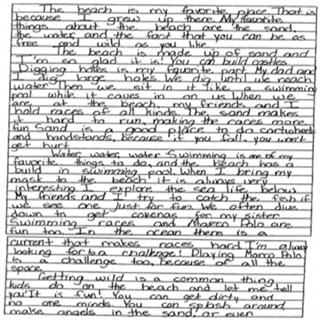 The beach is my favorite place. That is
because I grew up there. My favorite
things about the beach are the sand,
the water, and the fact that you can be as
free and wild as you like.
The beach is made up of sand and
I'm so glad it is! You can build castles
Digging holes is my favorite part. My dad and
dig large holes. We dig until we reach
water. Then we sit in it like a swimming
pool while it caves in on us. When we
are at the beach, my friends and I
hold races of all kinds. The sand makes
it hard to run, making the races more
fun. Sand is a good place to do cartwheels
and handstands, because if you fall, you won't
get hurt.
Water, water, water. Swimming is one of my
favorite things to do, and the beach has a
build in swimming pool. when I bring my
mask to the beach, it is always very
interesting. I explore the sea life below.
My friends and I try to catch the fish if
we see one just for fun. We often dive
down to get for my sister.
Swimming races and Marco Polo are
fun too. In the ocean there is a
current that makes races hard. I'm always
looking for a challenge! Playing Marco Polo
is a challenge too, because of all the
space.
Getting wild is a common thing
kids do on the beach and let me tell
you! It is fun! You can get dirty and
no one minds. You can splash around
make angels in the sand, or even